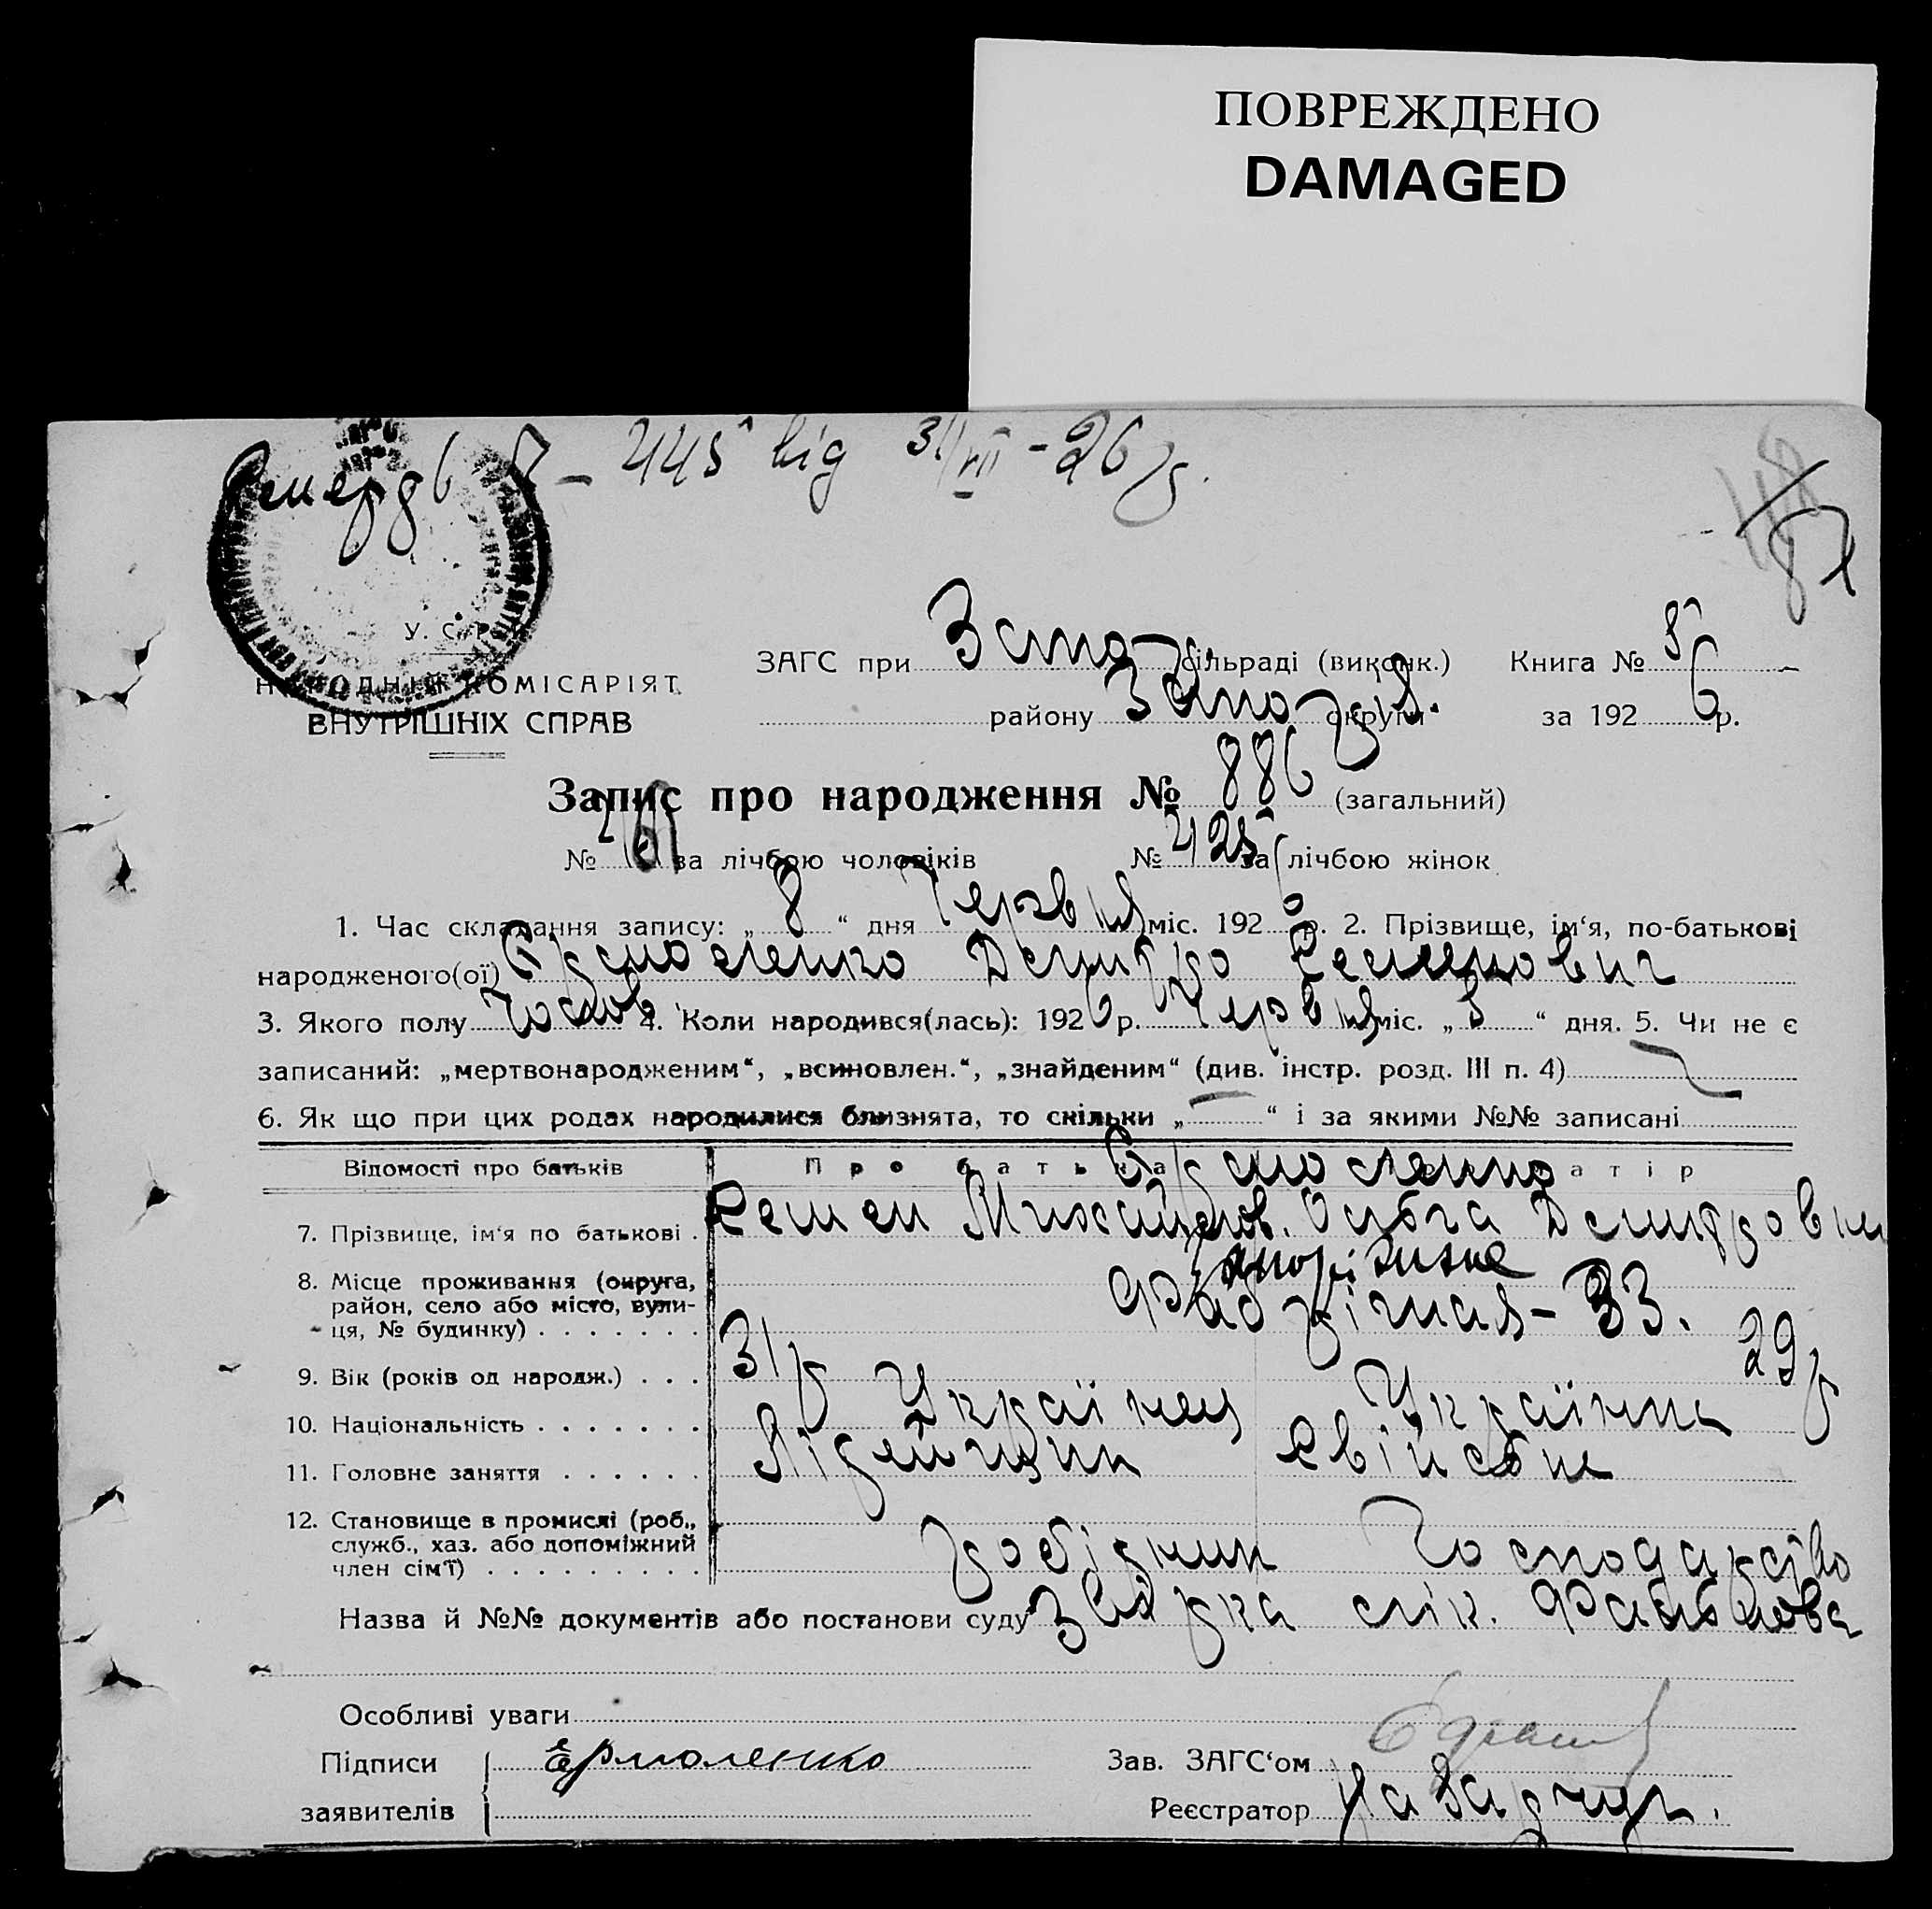 ПОВРЕЖДЕНО
DAMAGED
445 від 31/VII - 26 р.
У. С. Р. Р.
НАРОДНІЙ КОМІСАРІЯТ
ВНУТРІШНІХ СПРАВ
ЗАГС при Запо сільраді (виконк.) Книга № 5
району Запор. округи за 1926 р.
Запис про народження № 886 (загальний)
№ 461 за лічбою чоловіків № 425 за лічбою жінок
1. Час складання запису: „ 8 “ дня Червня міс. 1926 р. 2. Прізвище, ім‘я, по-батькові
народженого(ої) Єрмоленко Дмитро Семенович
3. Якого полу Чолов. 4. Коли народився(лась): 1926 р. Червня міс. „ 3 “ дня. 5. Чи не є
записаний: „мертвонародженим“, „всиновлен.“, „знайденим“ (див. інстр. розд. III п. 4)
6. Як що при цих родах народилися близнята, то скільки „ — “ і за якими №№ записані
Відомості про батьків Про батька Єрмоленко матір
7. Прізвище, ім‘я по батькові . Семен Михайлов. Ольга Дмитровна
8. Місце проживання (округа,
район, село або місто, вули-
ця, № будинку) . . . . . . . Запоріжжє
Фабрічная - 33.
9. Вік (років од народж.) . . . 31 р 29 р
10. Національність . . . . . . . Українец Українка
11. Головне заняття . . . . . . Лівейщик Свійське
12. Становище в промислі (роб.,
служб., хаз. або допоміжний
член сім‘ї) . . . . . . . . . . робідник Господарство
Назва й №№ документів або постанови суду Звірка лік.
Особливі уваги
Підписи Єрмоленко Зав. ЗАГС‘ом
заявителів Реєстратор